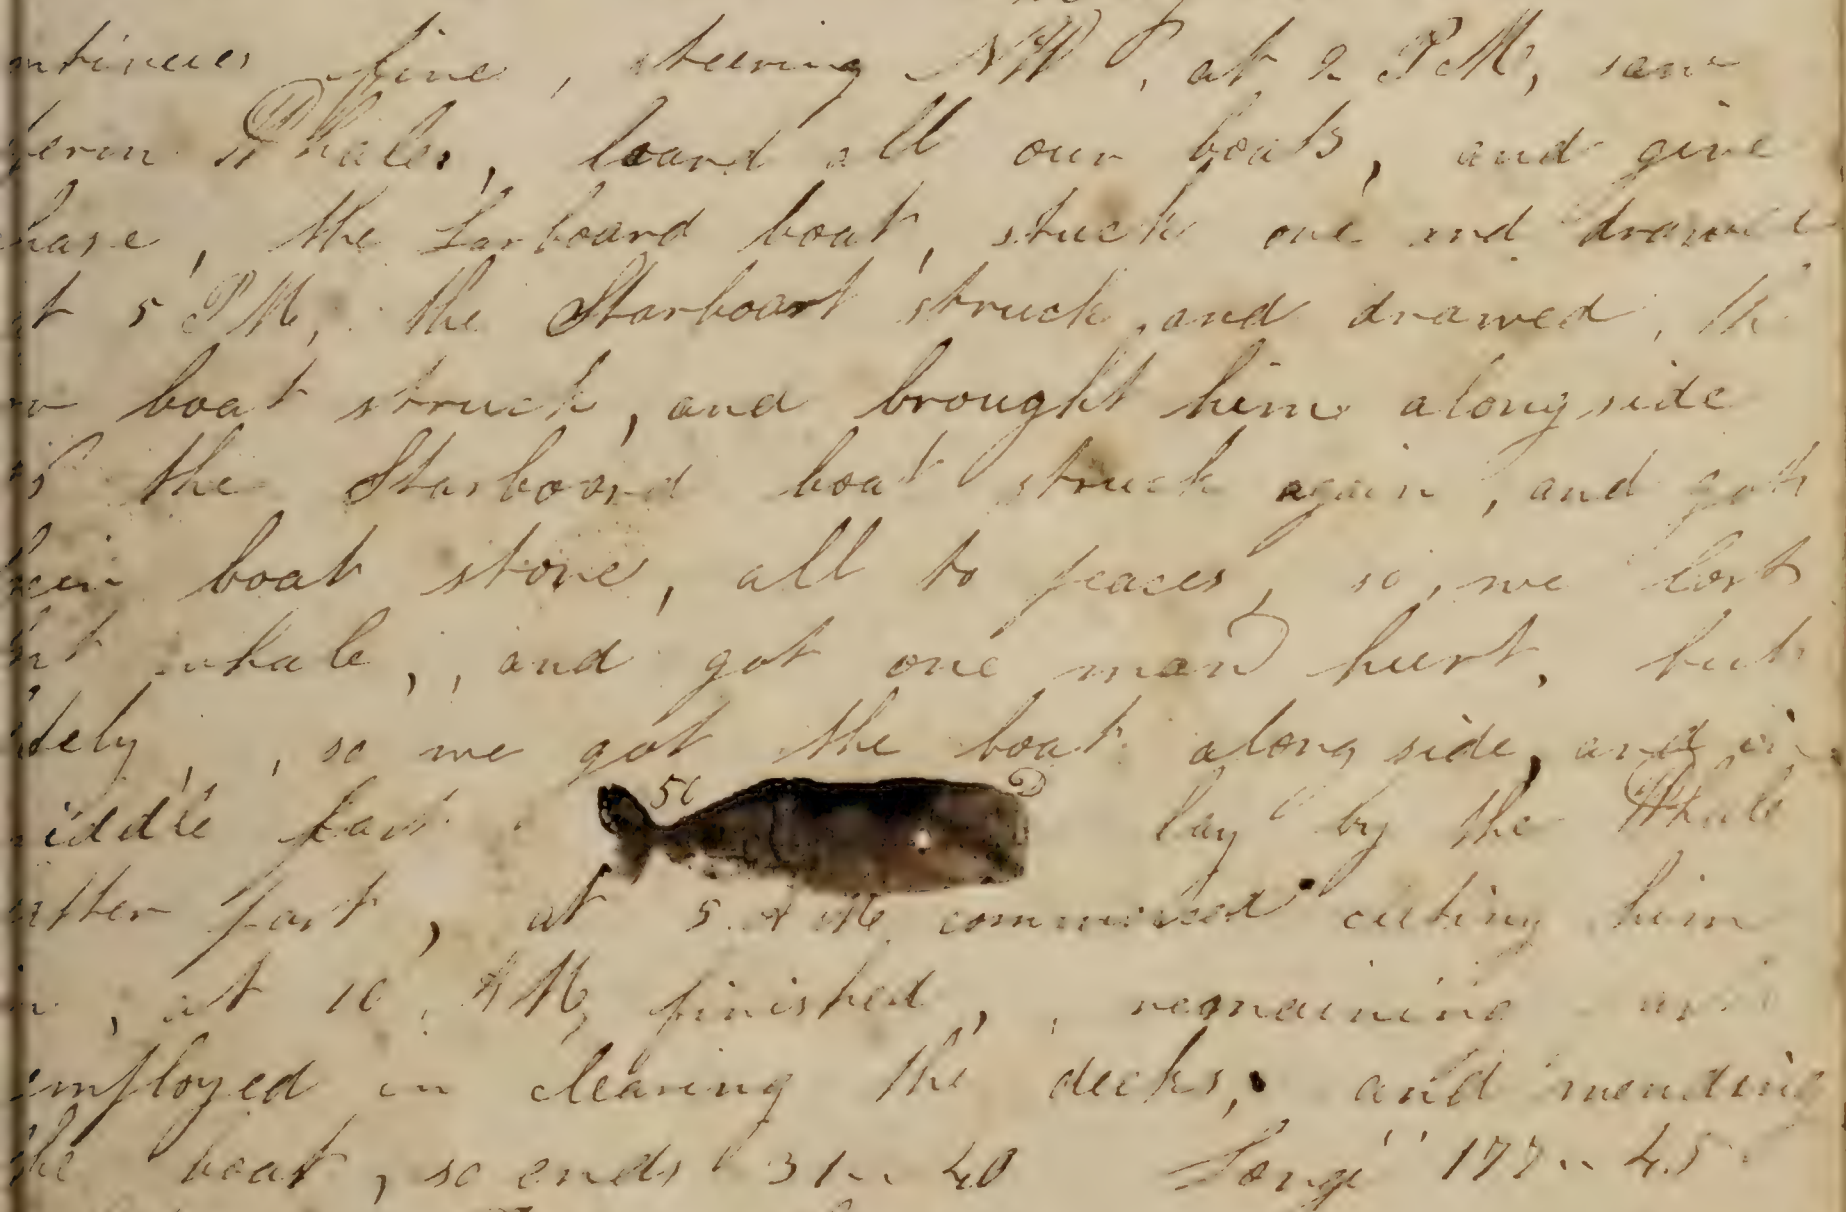 ntinues fine, steering NW, at 2 PM, saw
perm Whales, loard all our boats, and give
hase, the Larboard boat, stuck one and drawed
t 5 PM, the Starboart struck, and drawed, th
boat struck, and brought him alongside
the Starboard boat struck again, and gott
hein boat stove, all to peaces, so, we lost
ht whale,, and got one man hurt, but
dely,, so we got the boat along side, and in
middle part 50 lay by the Whale
atter part, at 5 AM commenced cuting him
n, at 10 AM, finished,, remaining
employed in clearing the decks, and mending
the boat, so ends 31 .. 40 Long 177 .. 45